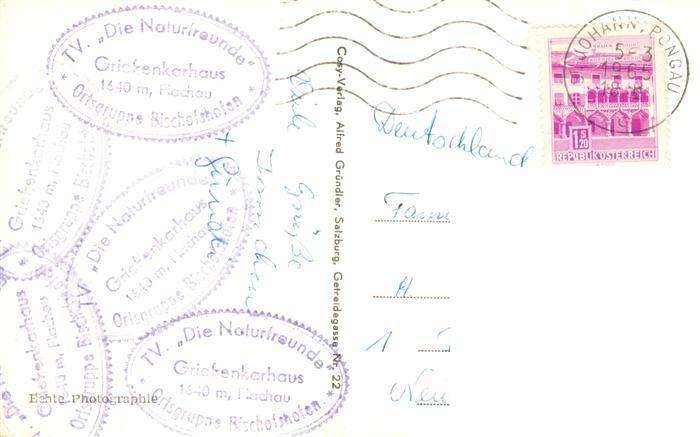 TV. „Die Naturfreunde“
Griekenkarhaus
1640 m, Flachau
* Ortsgruppe Bischofshofen *
Griekenkarhaus
1640 m, Flachau
Ortsgruppe Bisch
TV. „Die Naturfreunde“
Griekenkarhaus
1640 m, Flachau
Ortsgruppe Bischofshofen
„Die
Griekenkarhaus
1640 m, Flachau
Ortsgruppe
TV. „Die Naturfreunde“
Griekenkarhaus
1640 m, Flachau
* Ortsgruppe Bischofshofen *
Echte Photographie
Viele Grüße
+
Cosy-Verlag, Alfred Gründler, Salzburg, Getreidegasse Nr. 22
ST. JOHANN, PONGAU
5-3
1965
18
1 S 20
REPUBLIK ÖSTERREICH
Deutschland
Fam
H
1
Neu